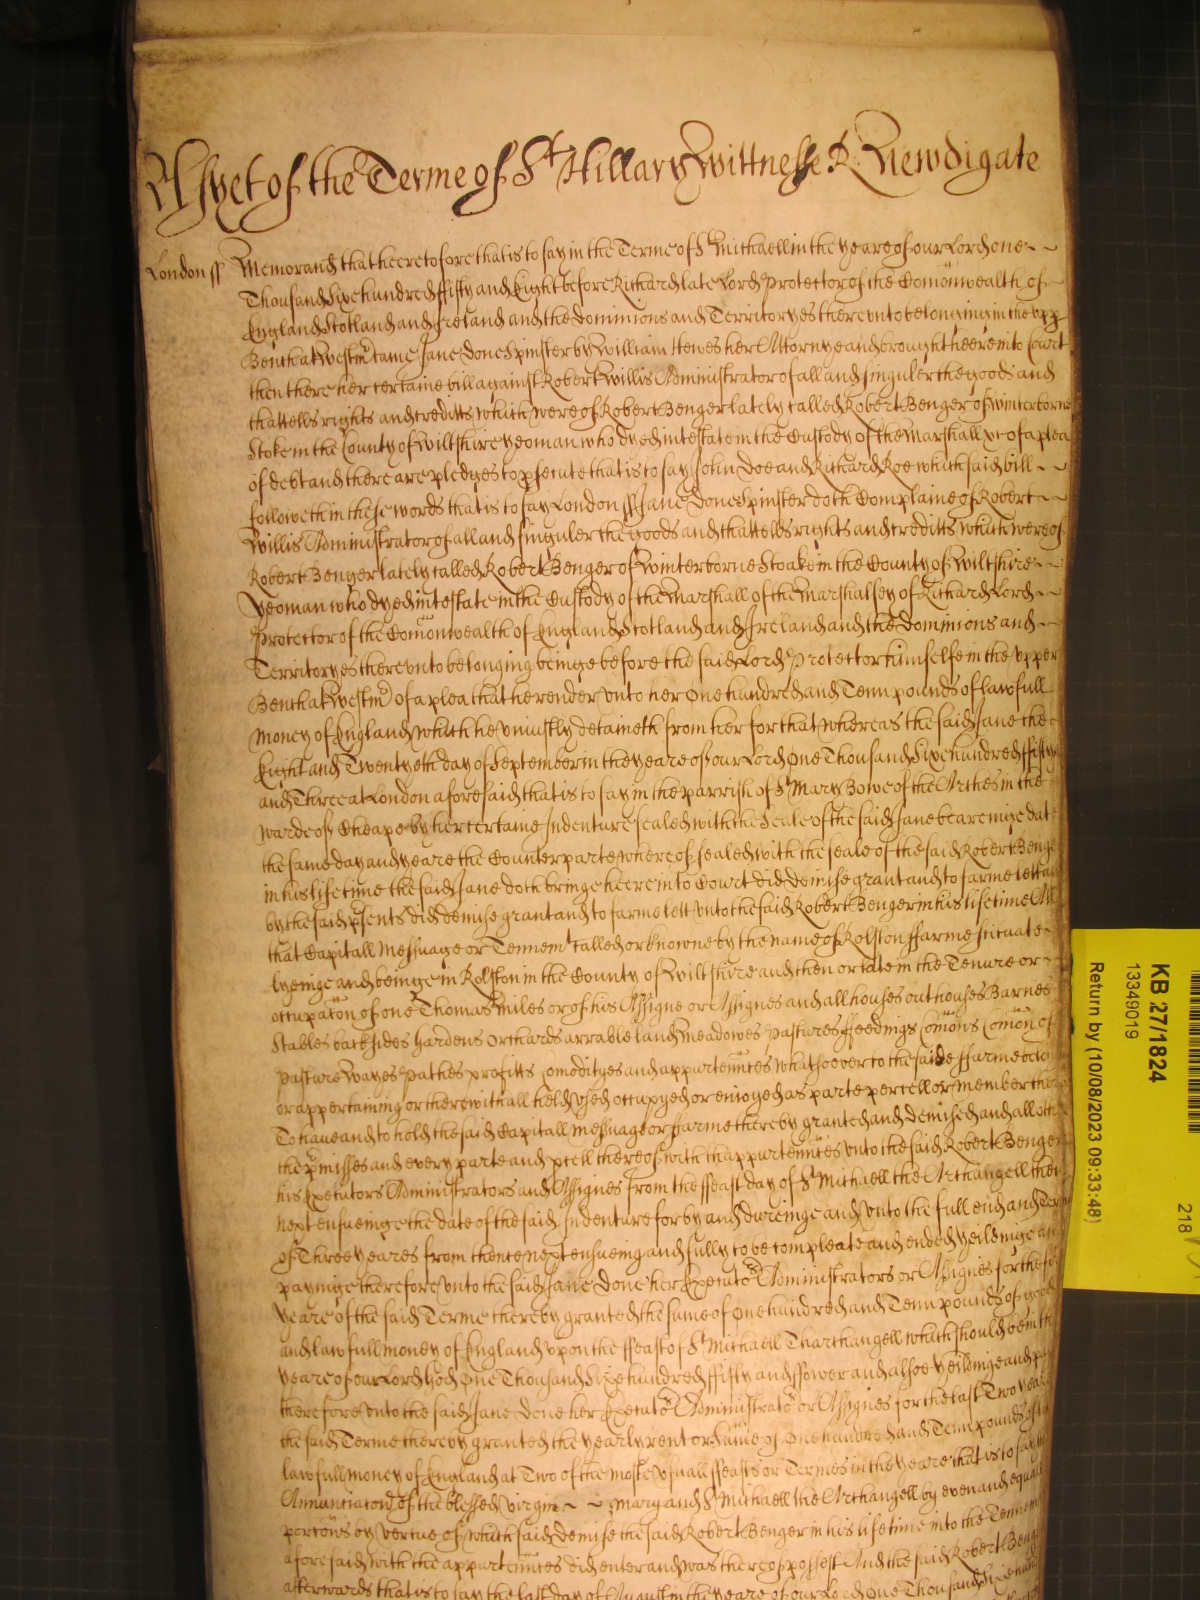 As yet of the Terme of St Hillary Wittnesse R: Newdigate
London ss Memorand that heeretofore that is to say in the Terme of St Michaell in the yeare of our Lord one
Thousand Sixe hundred ffifty and Eight before Richard late Lord Protector of the Comonwealth of
England Scotland and Ireland and the Dominions and Territoryes therevnto belonging in the vpp
Bench at Westmr came Jane Done Spinster by William Hewes her Attorney and brought heere into Court
then there her certaine bill against Robert Willis Administrator of all and singuler the goods and
chattells rights and creditts which were of Robert Benger lately called Robert Benger of Winterborne
Stoke in the County of Wiltshire yeoman who dyed intestate in the Custody of the Marshall &c of a plea
of debt and there are pledges to psecute that is to say John Doe and Richard Roe which said bill
followeth in these words that is to say London ss Jane Done Spinster doth Complaine of Robert
Willis Administrator of all and singuler the goods and chattells rights and creditts which were of
Robert Benger lately called Robert Benger of Winterborne Stoake in the County of Wiltshire
yeoman who dyed intestate in the Custody of the Marshall of the Marshalsey of Richard Lord
Protector of the Comonwealth of England Scotland and Ireland and the Dominions and
Territoryes therevnto belonging beinge before the said Lord Protector himselfe in the vpper
Bench at Westmr of a plea that he render vnto her One hundred and Tenn pounds of lawfull
money of England which he vniustly detaineth from her for that whereas the said Jane the
Eight and Twentyeth day of September in the yeare of our Lord One Thousand Sixe hundred ffifty
and Three at London aforesaid that is to say in the parrish of St Mary Bowe of the Arches in the
warde of Cheape by her certaine Indenture sealed with the Seale of the said Jane beareinge date
the same day and yeare the Counterparte whereof sealed with the seale of the said Robert Benge
in his life time the said Jane doth bringe heere into Court did demise grant and to farme lett and
by the said psents did demise grant and to farme lett vnto the said Robert Benger in his life time All
that Capitall Messuage or Tennemt called or knowne by the name of Rolston ffarme scituate
lyeinge and beinge in Rolston in the County of Wiltshire and then or late in the Tenure or
occupacon of one Thomas Miles or of his Assigne or Assignes and all houses outhouses Barnes
Stables backsides Gardens Orchards arrable land Meadowes Pastures ffeedings Comons Comon of
Pasture Wayes Pathes profitts Comodityes and appartennces whatsoever to the saide ffarme
or appertaining or therewithall held vsed occupyed or enioyed as parte percell or member
To haue and to hold the said Capitall messuage or ffarme thereby granted and demised and all
the pmisses and every parte and pcell thereof with thappurtennces vnto the said Robert Benger
his Executors Administrators and Assignes from the ffeast day of St Michaell the Archangell then
next ensueinge the date of the said Indenture for by and dureinge and vnto the full end and Term
of Three yeares from thence next ensueing and fully to be compleate and ended yeildinge an
payinge therefore vnto the said Jane Done her Executors Administrators or Assignes for the
yeare of the said Terme thereby granted the sume of One hundred and Tenn pounds of good
and lawfull money of England vpon the ffeast of St Michaell Tharchangell which should be in th
yeare of our Lord God One Thousand Sixe hundred ffifty and ffower and alsoe yeildinge and pa
therefore vnto the said Jane Done her Executors Administrators or Assignes for the last Two yeares
the said Terme thereby granted the yearly rent or Sume of One hundred and Tenn pounds of
lawfull money of England at Two of the moste vsuall ffeasts or Termes in the yeare that is to say
Annunciacon of the blessed virgin Mary and St Michaell the Archangell by even and equall
porcons by vertue of which said demise the said Robert Benger in his life time into the Tennem
aforesaid with the appartennces did enter and was thereof possest And the said Robert Beng
afterwards that is to say the last day of August in the yeare of our Lord One Thousand Sixe
KB 27/1824
13349019
Return by (10/08/2023 09:33:48)
218